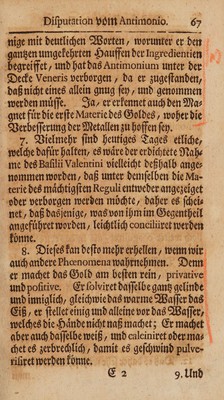 Disputation vom Antimonio. 67
nige mit deutlichen Worten, worunter er den
gantzen umgekehrten Hauffen der Ingredientien
begreiffet, und hat das Antimonium unter der
Decke Veneris verborgen, da er zugestanden,
daß nicht eines allein gnug sey, und genommen
werden müsse. Ja, er erkennet auch den Ma-
gnet für die erste Materie des Goldes, woher die
Verbesserung der Metallen zu hoffen sey.
7. Vielmehr sind heutiges Tages etliche,
welche dafür halten, es wäre der erdichtete Nah-
me des Basilii Valentini vielleicht deßhalb ange-
nommen worden, daß unter demselben die Ma-
terie des mächtigsten Reguli entweder angezeiget
oder verborgen werden möchte, daher es schei-
net, daß dasjenige, was von ihm im Gegentheil
angeführet worden, leichtlich conciliiret werden
könne.
8. Dieses kan desto mehr erhellen, wenn wir
auch andere Phœnomena wahrnehmen. Denn
er machet das Gold am besten rein, privative
und positive. Er solviret dasselbe gantz gelinde
und inniglich, gleichwie das warme Wasser das
Eiß, er stellet einig und alleine vor das Wasser,
welches die Hände nicht naß machet; Er machet
aber auch dasselbe weiß, und calciniret oder ma-
chet es zerbrechlich, damit es geschwind pulve-
risiret werden könne.
E 2 9. Und